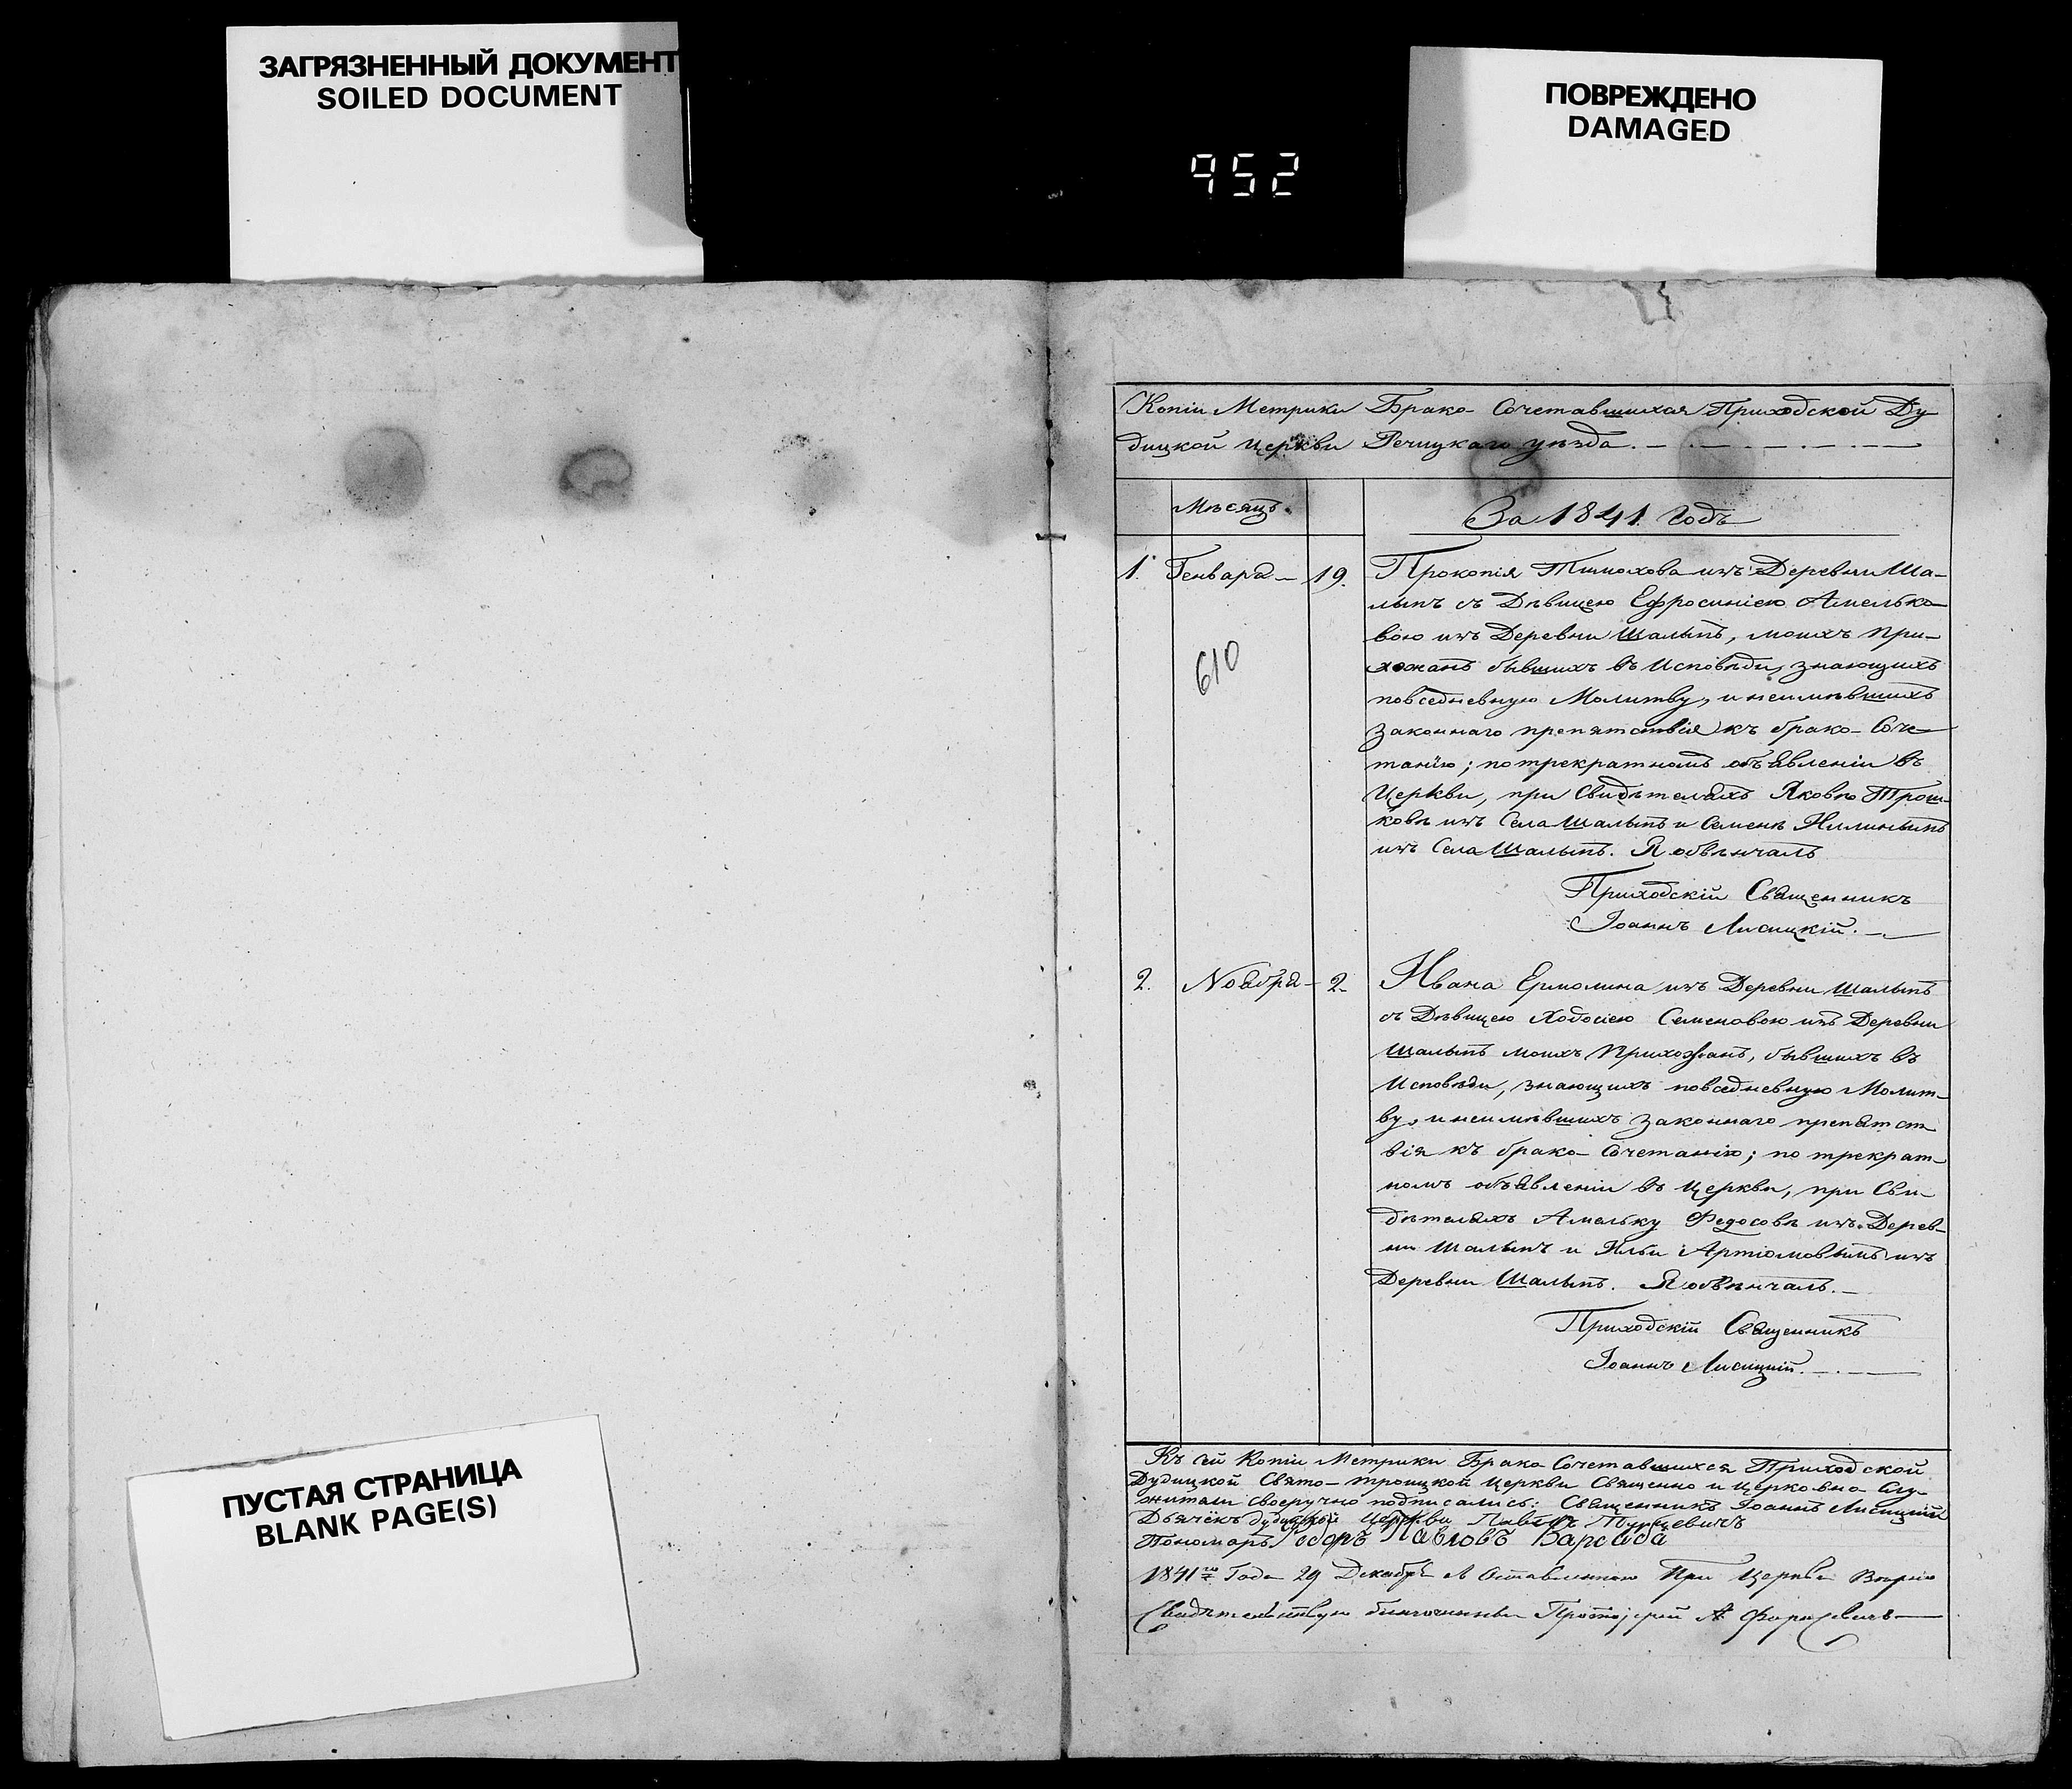 ЗАГРЯЗНЕННЫЙ ДОКУМЕНТ
SOILED DOCUMENT
952
ПОВРЕЖДЕНО
DAMAGED
Копіи Метрики Брако-Сочетавшихся Приходской Ду
дицкой Церкви Речицкаго уезда.
Мѣсяцъ.
За 1841. Годъ
1. Генваря 19. Прокопія Тимохова изъ Деревни Ша-
лыпъ съ Дѣвицею Ефросиніею Амелько
вою изъ Деревни Шалыпъ, моихъ при-
хожанъ бывшихъ въ Исповѣди, знающихъ
610
повседневную Молитву, и неимѣвшихъ
законнаго препятствія къ брако-Соче
танїю; по трекратномъ объявленіи въ
Церкви, при Свидѣтеляхъ Яковѣ Трош-
ковѣ изъ Села Шалыпъ и Семенѣ
изъ Села Шалыпъ. Я обвѣнчалъ
Приходскій Священникъ
Іоаннъ Лисицкій.
2. Ноября 2. Ивана Ермолина изъ Деревни Шалыпъ
съ Дѣвицею Ходосіею Семеновою изъ Деревни
Шалыпъ моихъ Прихожанъ, бывшихъ въ
Исповѣди, знающихъ повседневную Молит-
ву, и неимѣвшихъ законнаго препятст
вія къ брако-Сочетанію; по трекрат-
номъ объявленіи въ Церкви, при Сви-
дѣтеляхъ Амельку Федосовѣ изъ Дерев-
ни Шалыпъ и Ильи Артіомовымъ изъ
Деревни Шалыпъ. Я обвѣнчалъ.
Приходскій Священникъ
Іоаннъ Лисицкій.
Къ сей Копіи Метрики Брако-Сочетавшихся Приходской
Дудицкой Свято-Троицкой Церкви Священно и Церковно-Слу-
жители своеручно подписались: Священникъ Іоаннъ Лисицкій
Дьячекъ Дудицкой Церкви Павелъ
Пономарь Павловъ Варсаба
1841го Года 29 Декабря Оставленною При Церкви
Свидѣтельствую благочинный Протоіерей А.
ПУСТАЯ СТРАНИЦА
BLANK PAGE(S)